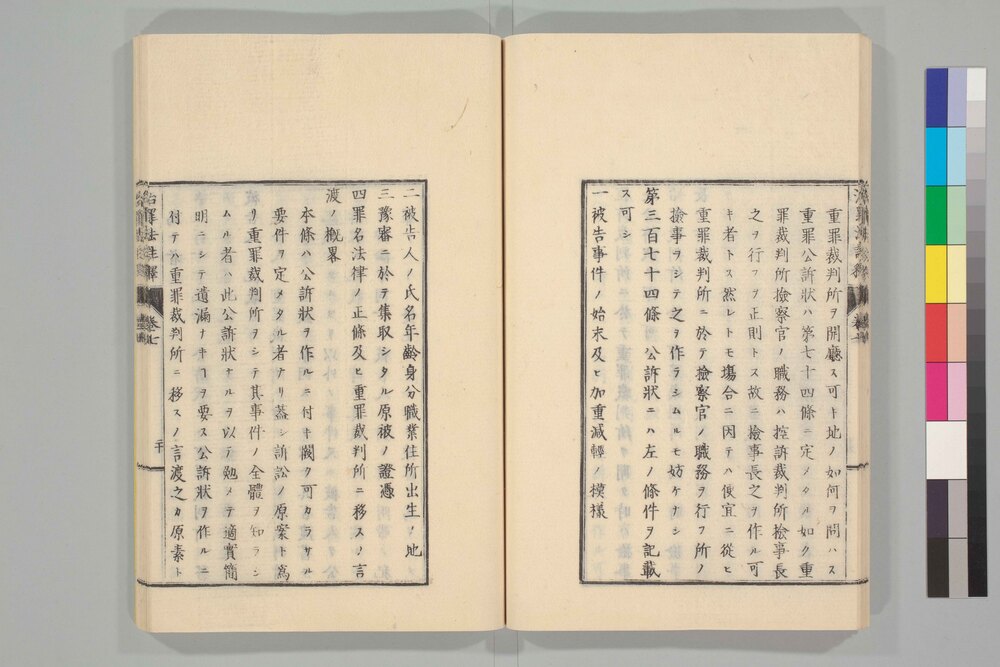 重罪裁判所ヲ開廳ス可キ地ノ如何ヲ問ハス
重罪公訴狀ハ第七十四條ニ定メタル如ク重
罪裁判所撿察官ノ職務ハ控訴裁判所撿事長
之ヲ行フヲ正則トス故ニ撿事長之ヲ作ル可
キ者トス然レトモ塲合ニ因テハ便宜ニ從ヒ
重罪裁判所ニ於テ撿察官ノ職務ヲ行フ所ノ
撿事ヲシテ之ヲ作ラシムルモ妨ケナシ
第三百七十四條 公訴狀ニハ左ノ條件ヲ記載
ス可シ
一被告事件ノ始末及ヒ加重減輕ノ模樣
二被告人ノ氏名年齡身分職業住所出生ノ地
三豫審ニ於テ集取シタル原被ノ證憑
四罪名法律ノ正條及ヒ重罪裁判所ニ移スノ言
渡ノ概畧
本條ハ公訴狀ヲ作ルニ付キ闕ク可カラサル
要件ヲ定メタル者ナリ蓋シ訴訟ノ原案ト爲
リ重罪裁判所ヲシテ其事件ノ全體ヲ知ラシ
ムル者ハ此公訴狀ナルヲ以テ勉メテ適實簡
明ニシテ遺漏ナキヿヲ要ス公訴狀ヲ作ルニ
付テハ重罪裁判所ニ移スノ言渡之カ原素ト
治罪法註釋 卷七
二十